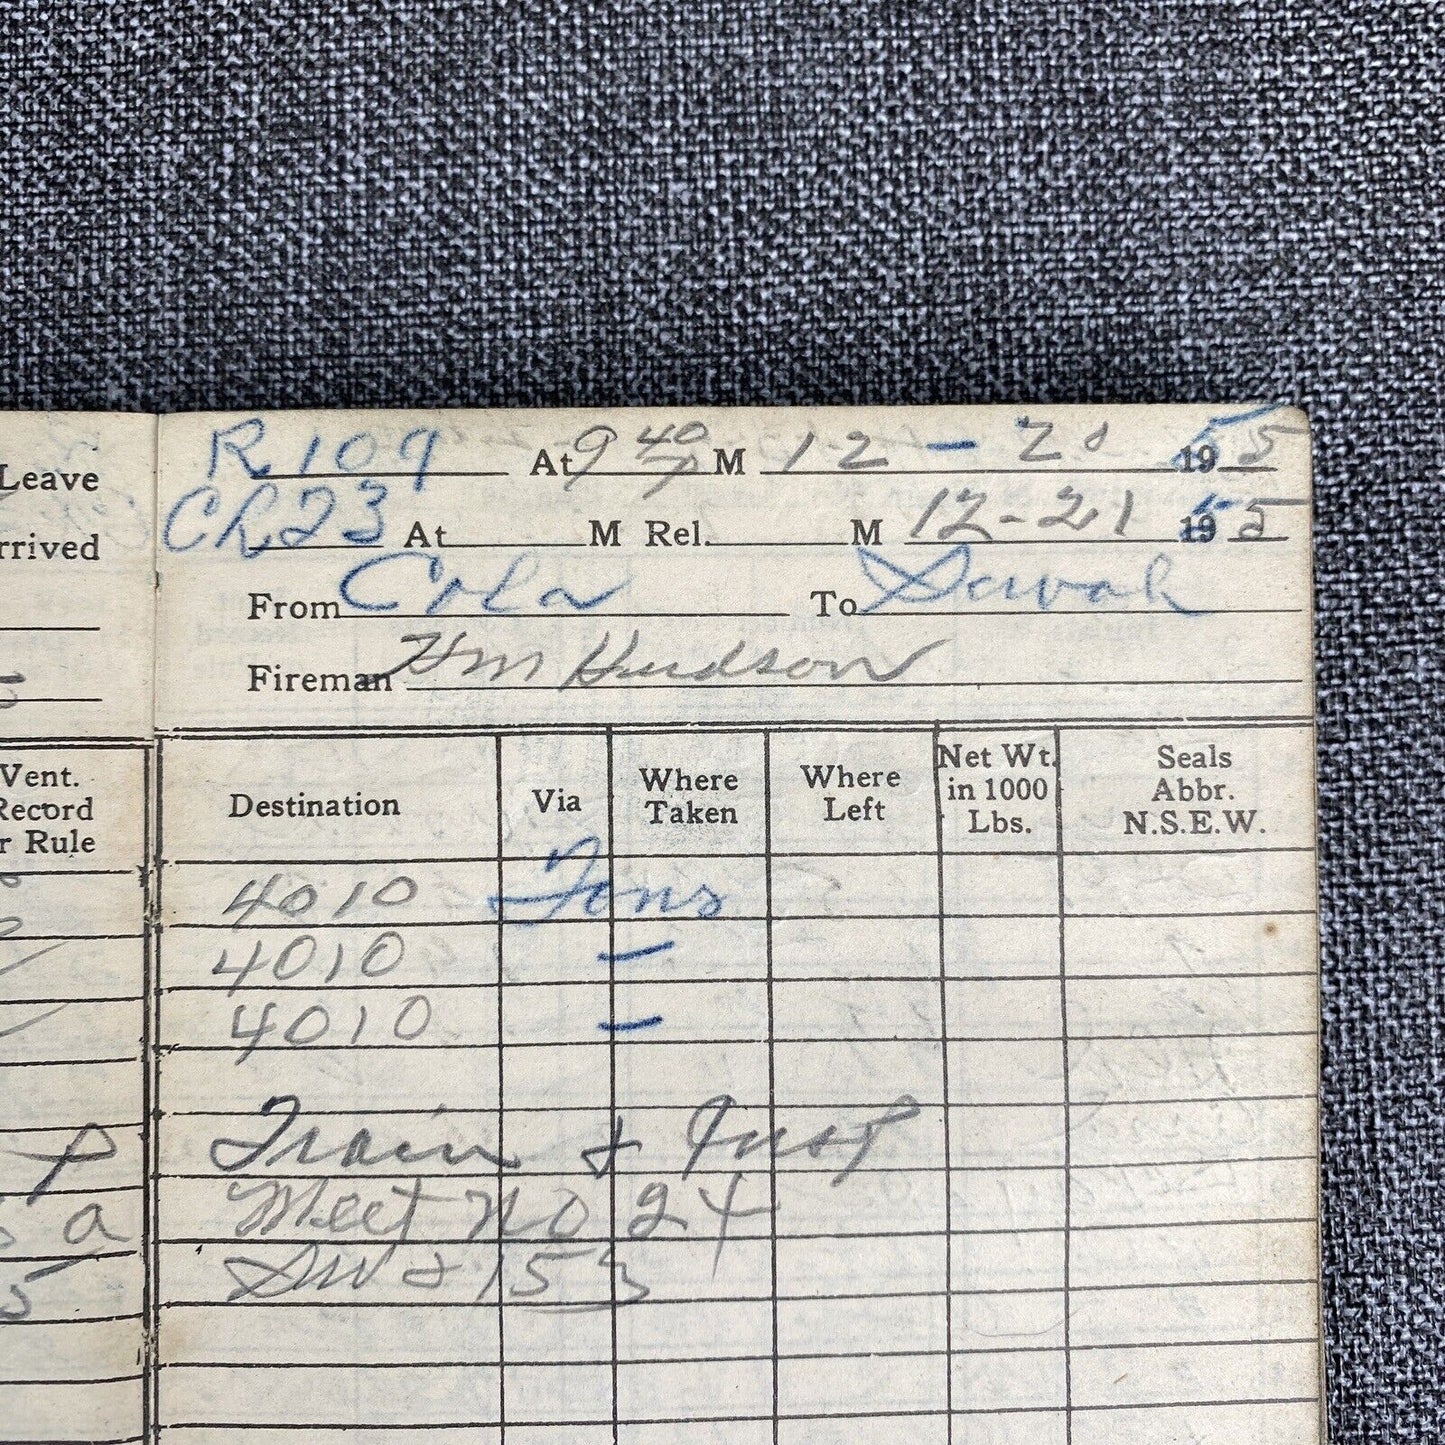 Leave
rrived
R109 At 9 40 P M 12 - 20 1955
CR23 At M Rel. M 12-21 1955
From Cola To Savah
Fireman Hm Hudson
Vent.
Record
r Rule
Destination Via Where Taken Where Left Net Wt. in 1000 Lbs. Seals Abbr. N.S.E.W.
4010 Tons
4010 –
4010 –
P Train & Inst
a Meet No 24
5 SW & 153